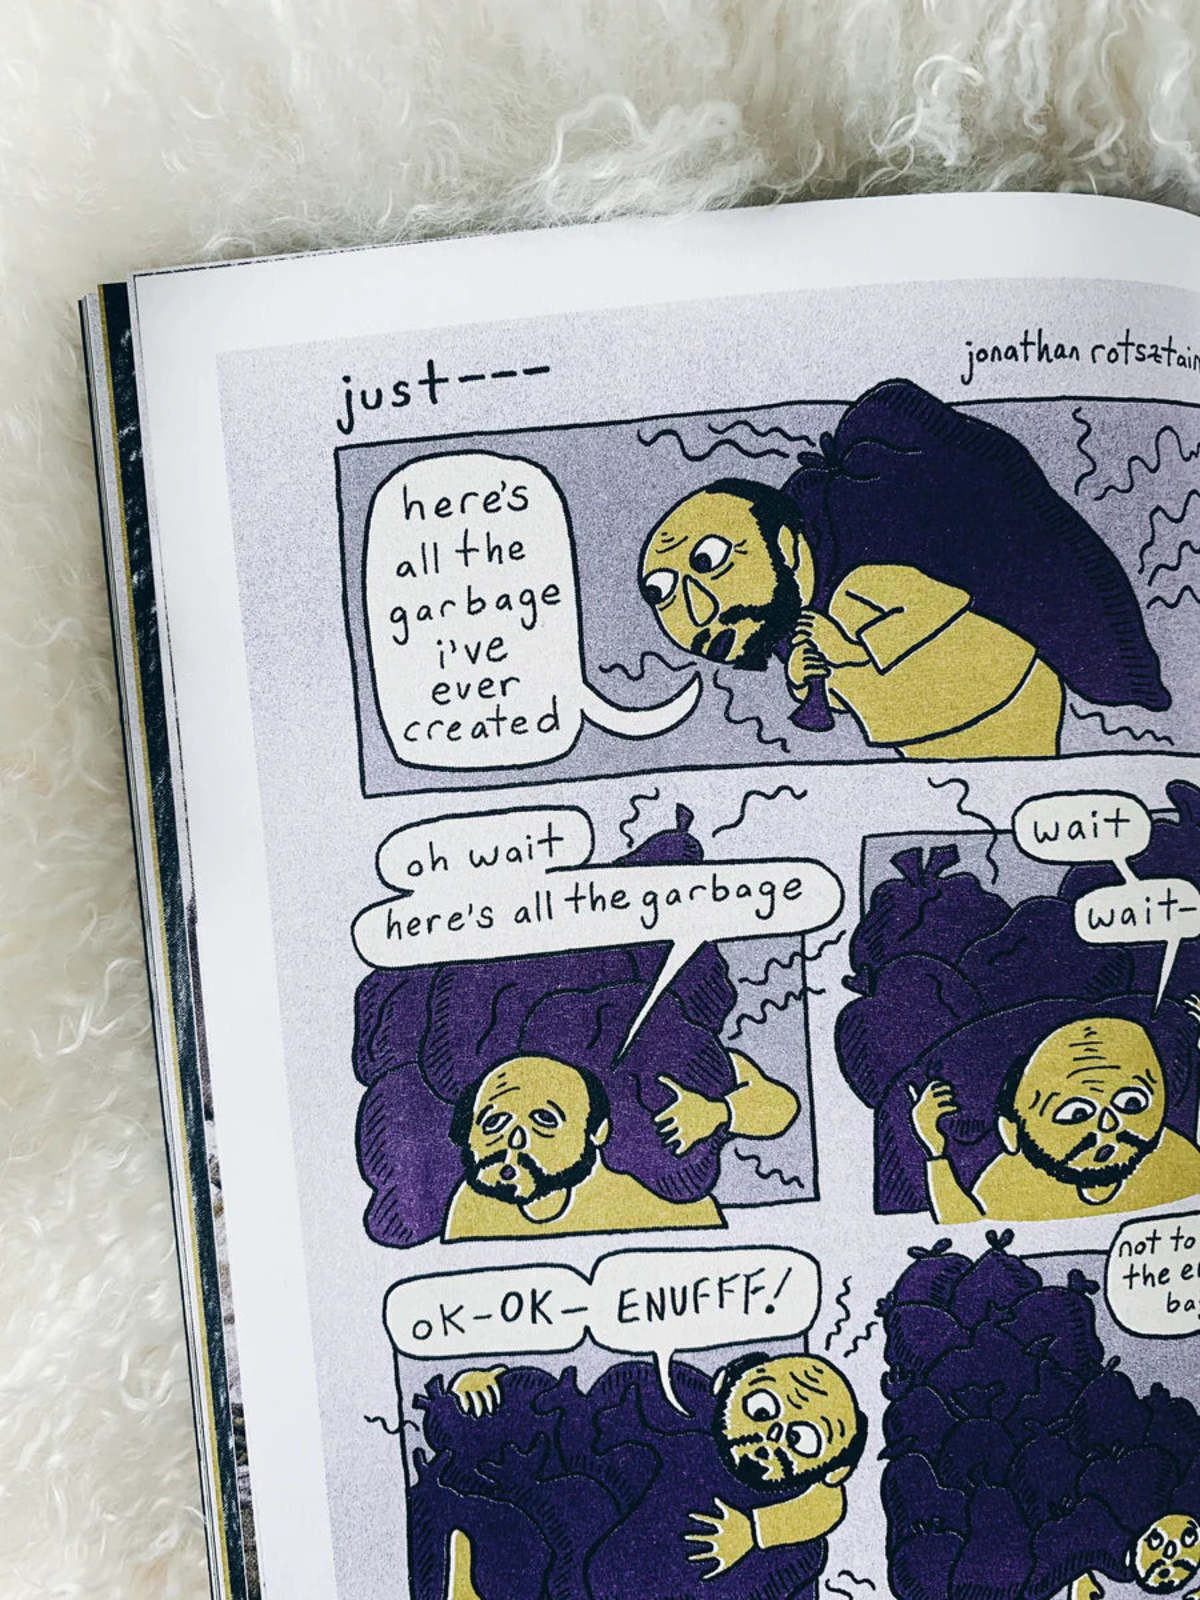 just---
jonathan rotsztain
here's
all the
garbage
i've
ever
created
oh wait
here's all the garbage
wait
wait-
OK-OK-
ENUFFF!
not to
the